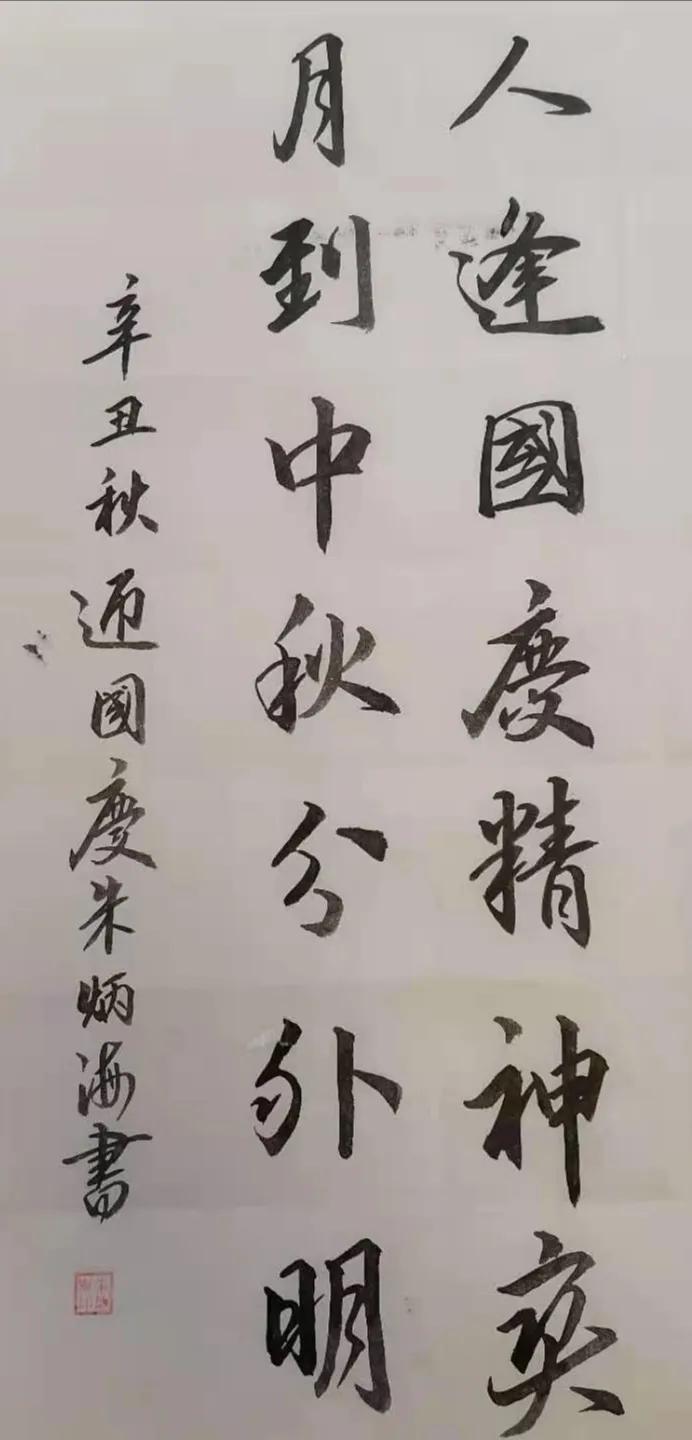 人逢國慶精神爽
月到中秋分外明
辛丑秋迎國慶朱炳海書